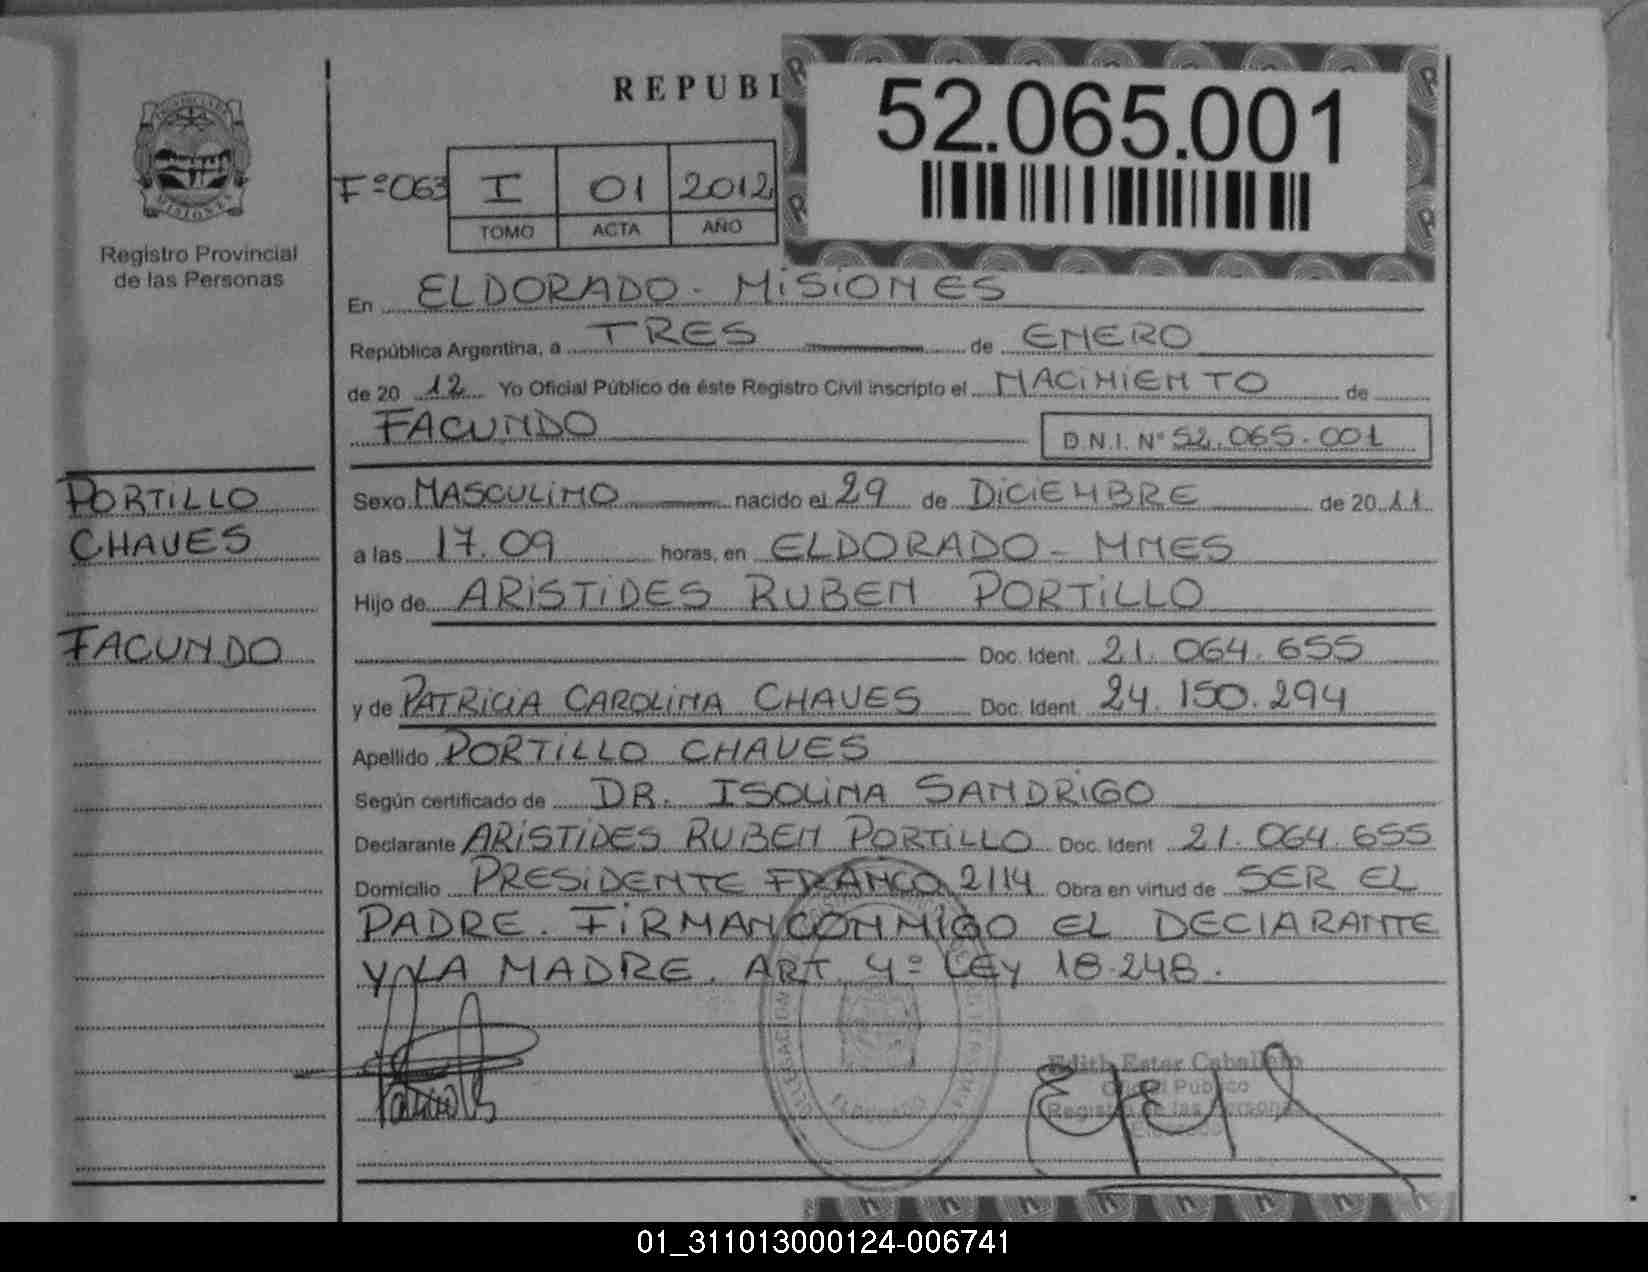 REPUBI
52.065.001
PROVINCIA DE
MISIONES
Registro Provincial
de las Personas
Fº063 I 01 2012
TOMO ACTA AÑO
En ELDORADO - MISIONES
República Argentina, a TRES de ENERO
de 20 12 Yo Oficial Público de éste Registro Civil inscripto el NACIMIENTO de
FACUNDO D.N.I. Nº 52.065.001
PORTILLO
CHAVES
FACUNDO
Sexo MASCULINO nacido el 29 de DICIEMBRE de 20 11
a las 17.09 horas, en ELDORADO - MNES
Hijo de ARISTIDES RUBEN PORTILLO
Doc. Ident. 21.064.655
y de PATRICIA CAROLINA CHAVES Doc. Ident. 24.150.294
Apellido PORTILLO CHAVES
Según certificado de DR. ISOLINA SANDRIGO
Declarante ARISTIDES RUBEN PORTILLO Doc. Ident 21.064.655
Domicilio PRESIDENTE FRANCO 2114 Obra en virtud de SER EL
PADRE. FIRMAN CONMIGO EL DECLARANTE
Y LA MADRE. ART. 4º LEY 18.248.
Edith Ester Caballero
Oficial Público
Registro de las Personas
01_311013000124-006741